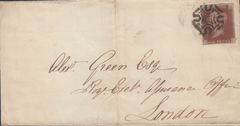 Alex. Green Esq
Roy. Exch. Assurance Office
London